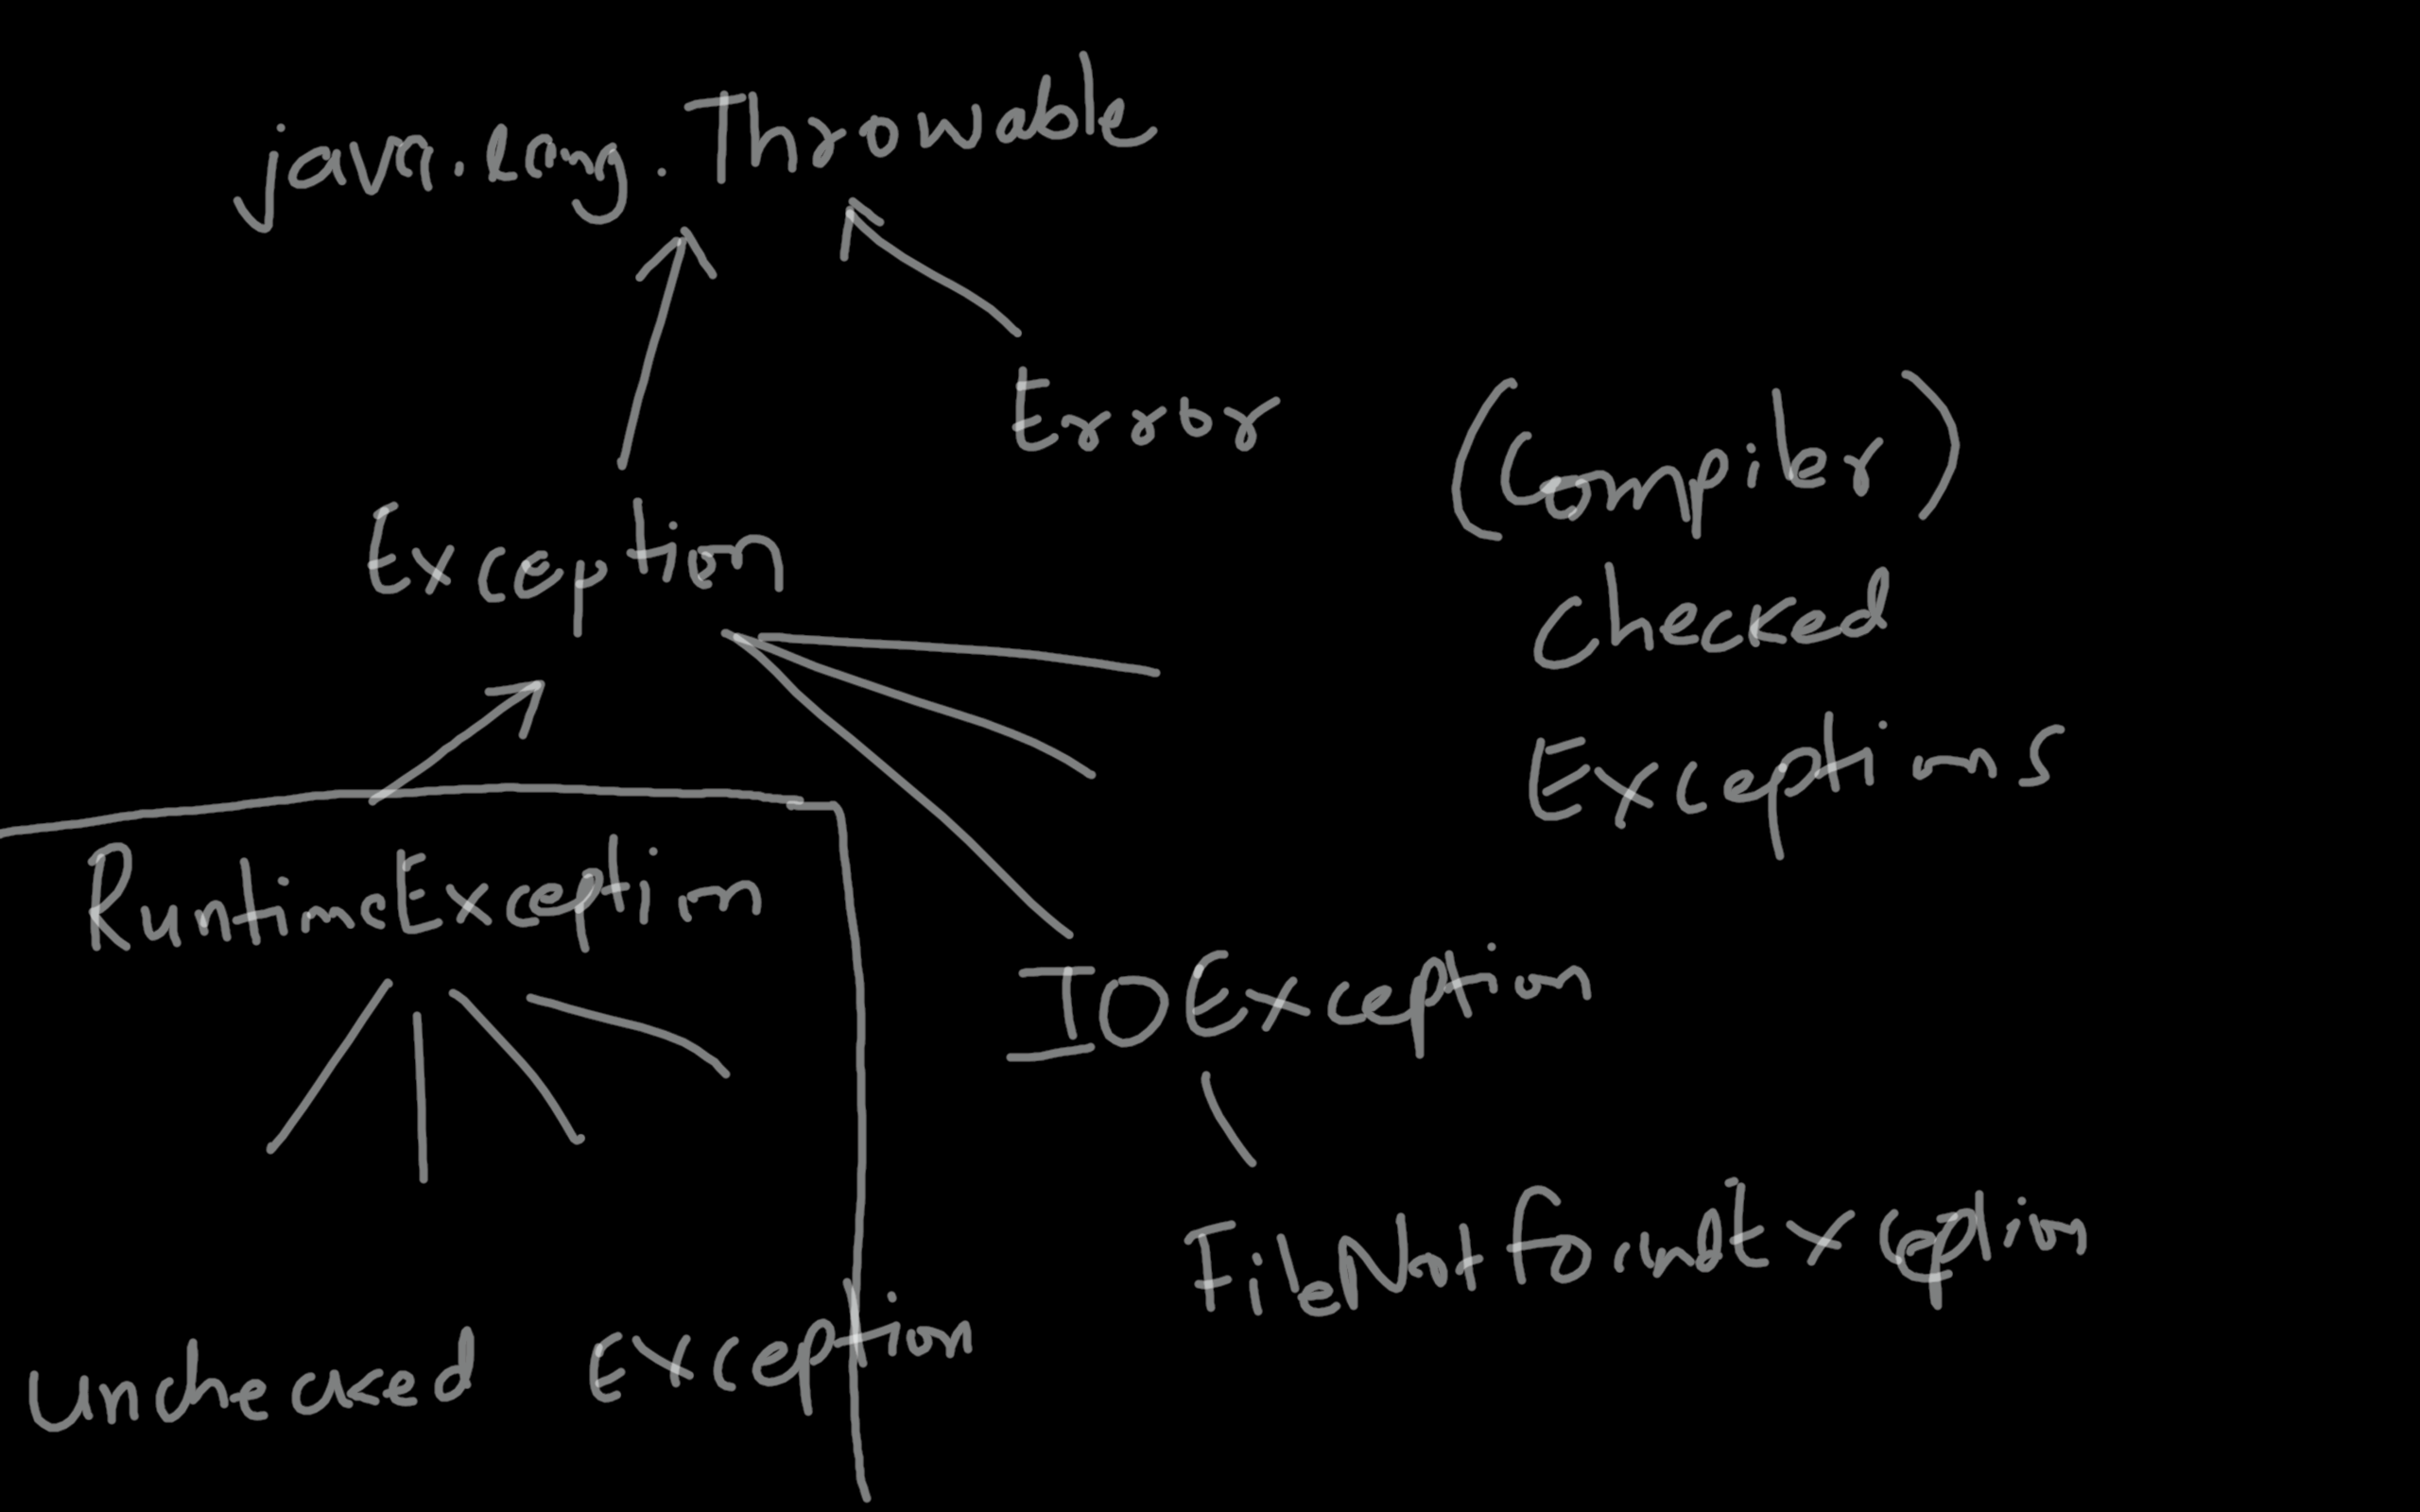 java.lang.Throwable
Error
(Compiler)
Exception
Checked
Exceptions
RuntimeException
IOException
FileNotFoundException
Unchecked Exception